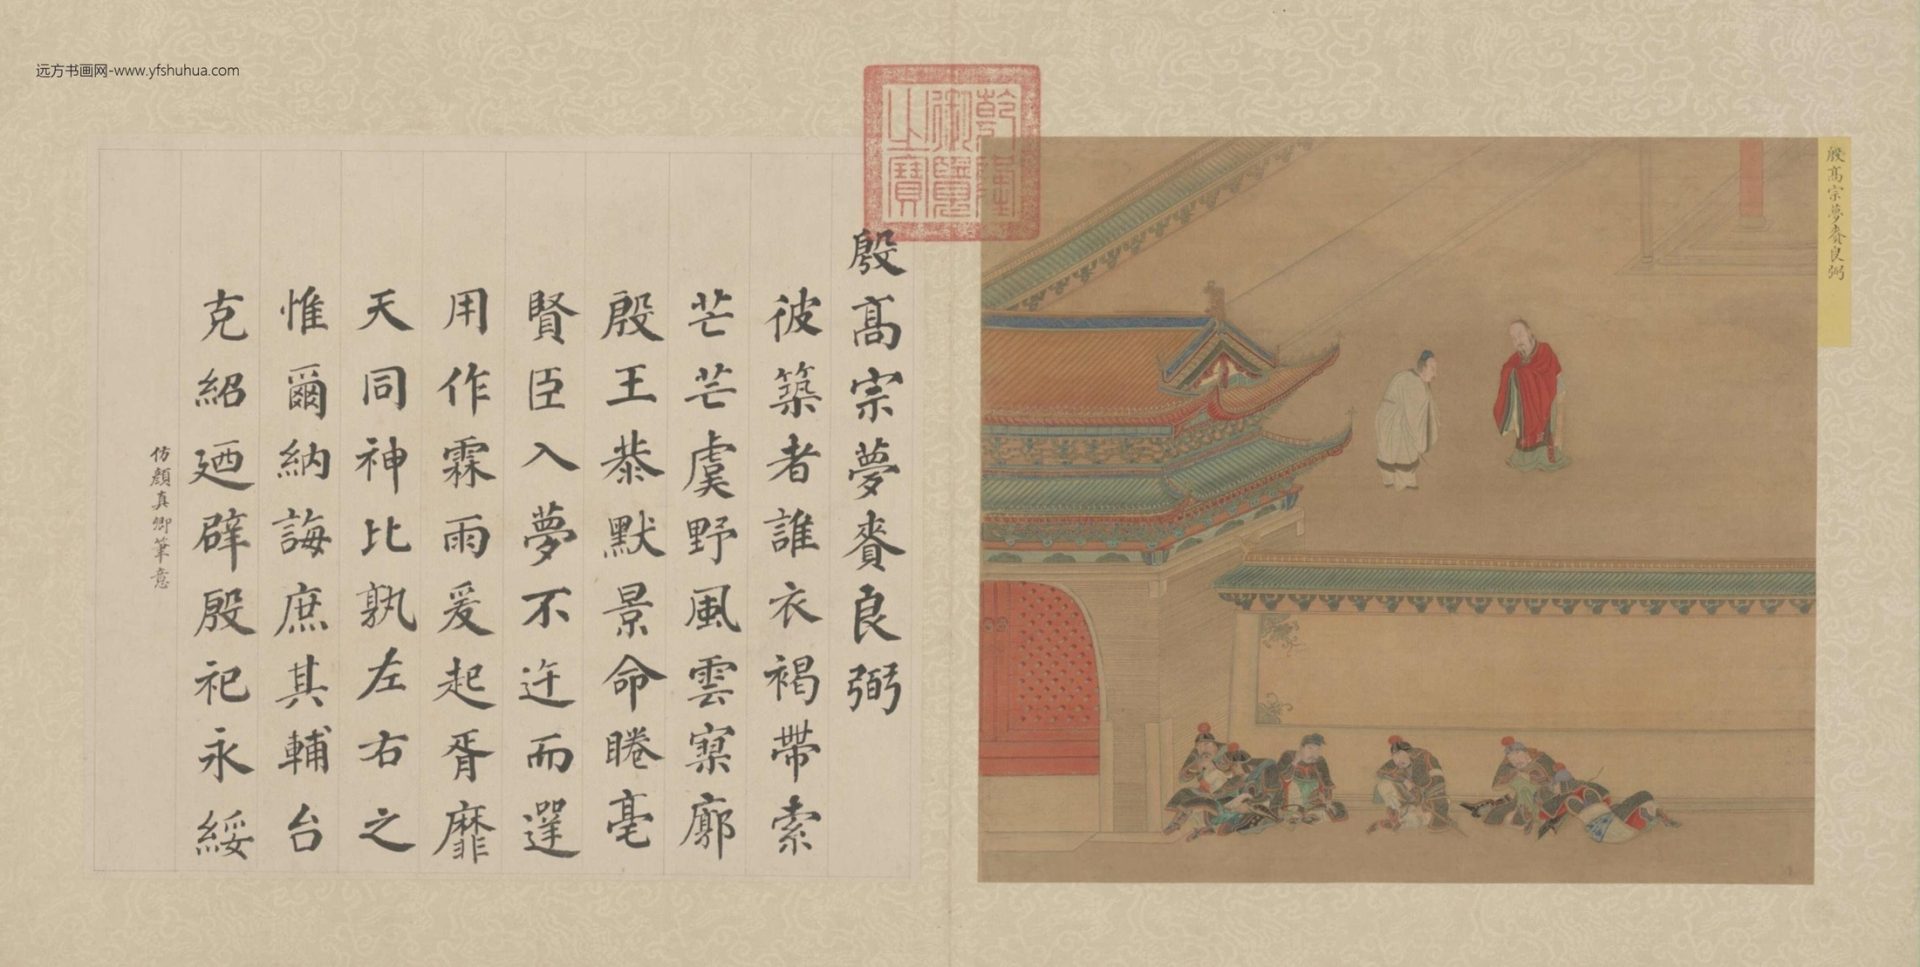 远方书画网-www.yfshuhua.com
乾隆御覽之寶
殷髙宗夢賚良弼
殷髙宗夢賚良弼
彼築者誰衣褐帶索
芒芒虞野風雲寥廓
殷王恭默景命睠亳
賢臣入夢不迕而遻
用作霖雨爰起胥靡
天同神比孰左右之
惟爾納誨庶其輔台
克紹廼辟殷祀永綏
仿顏真卿筆意